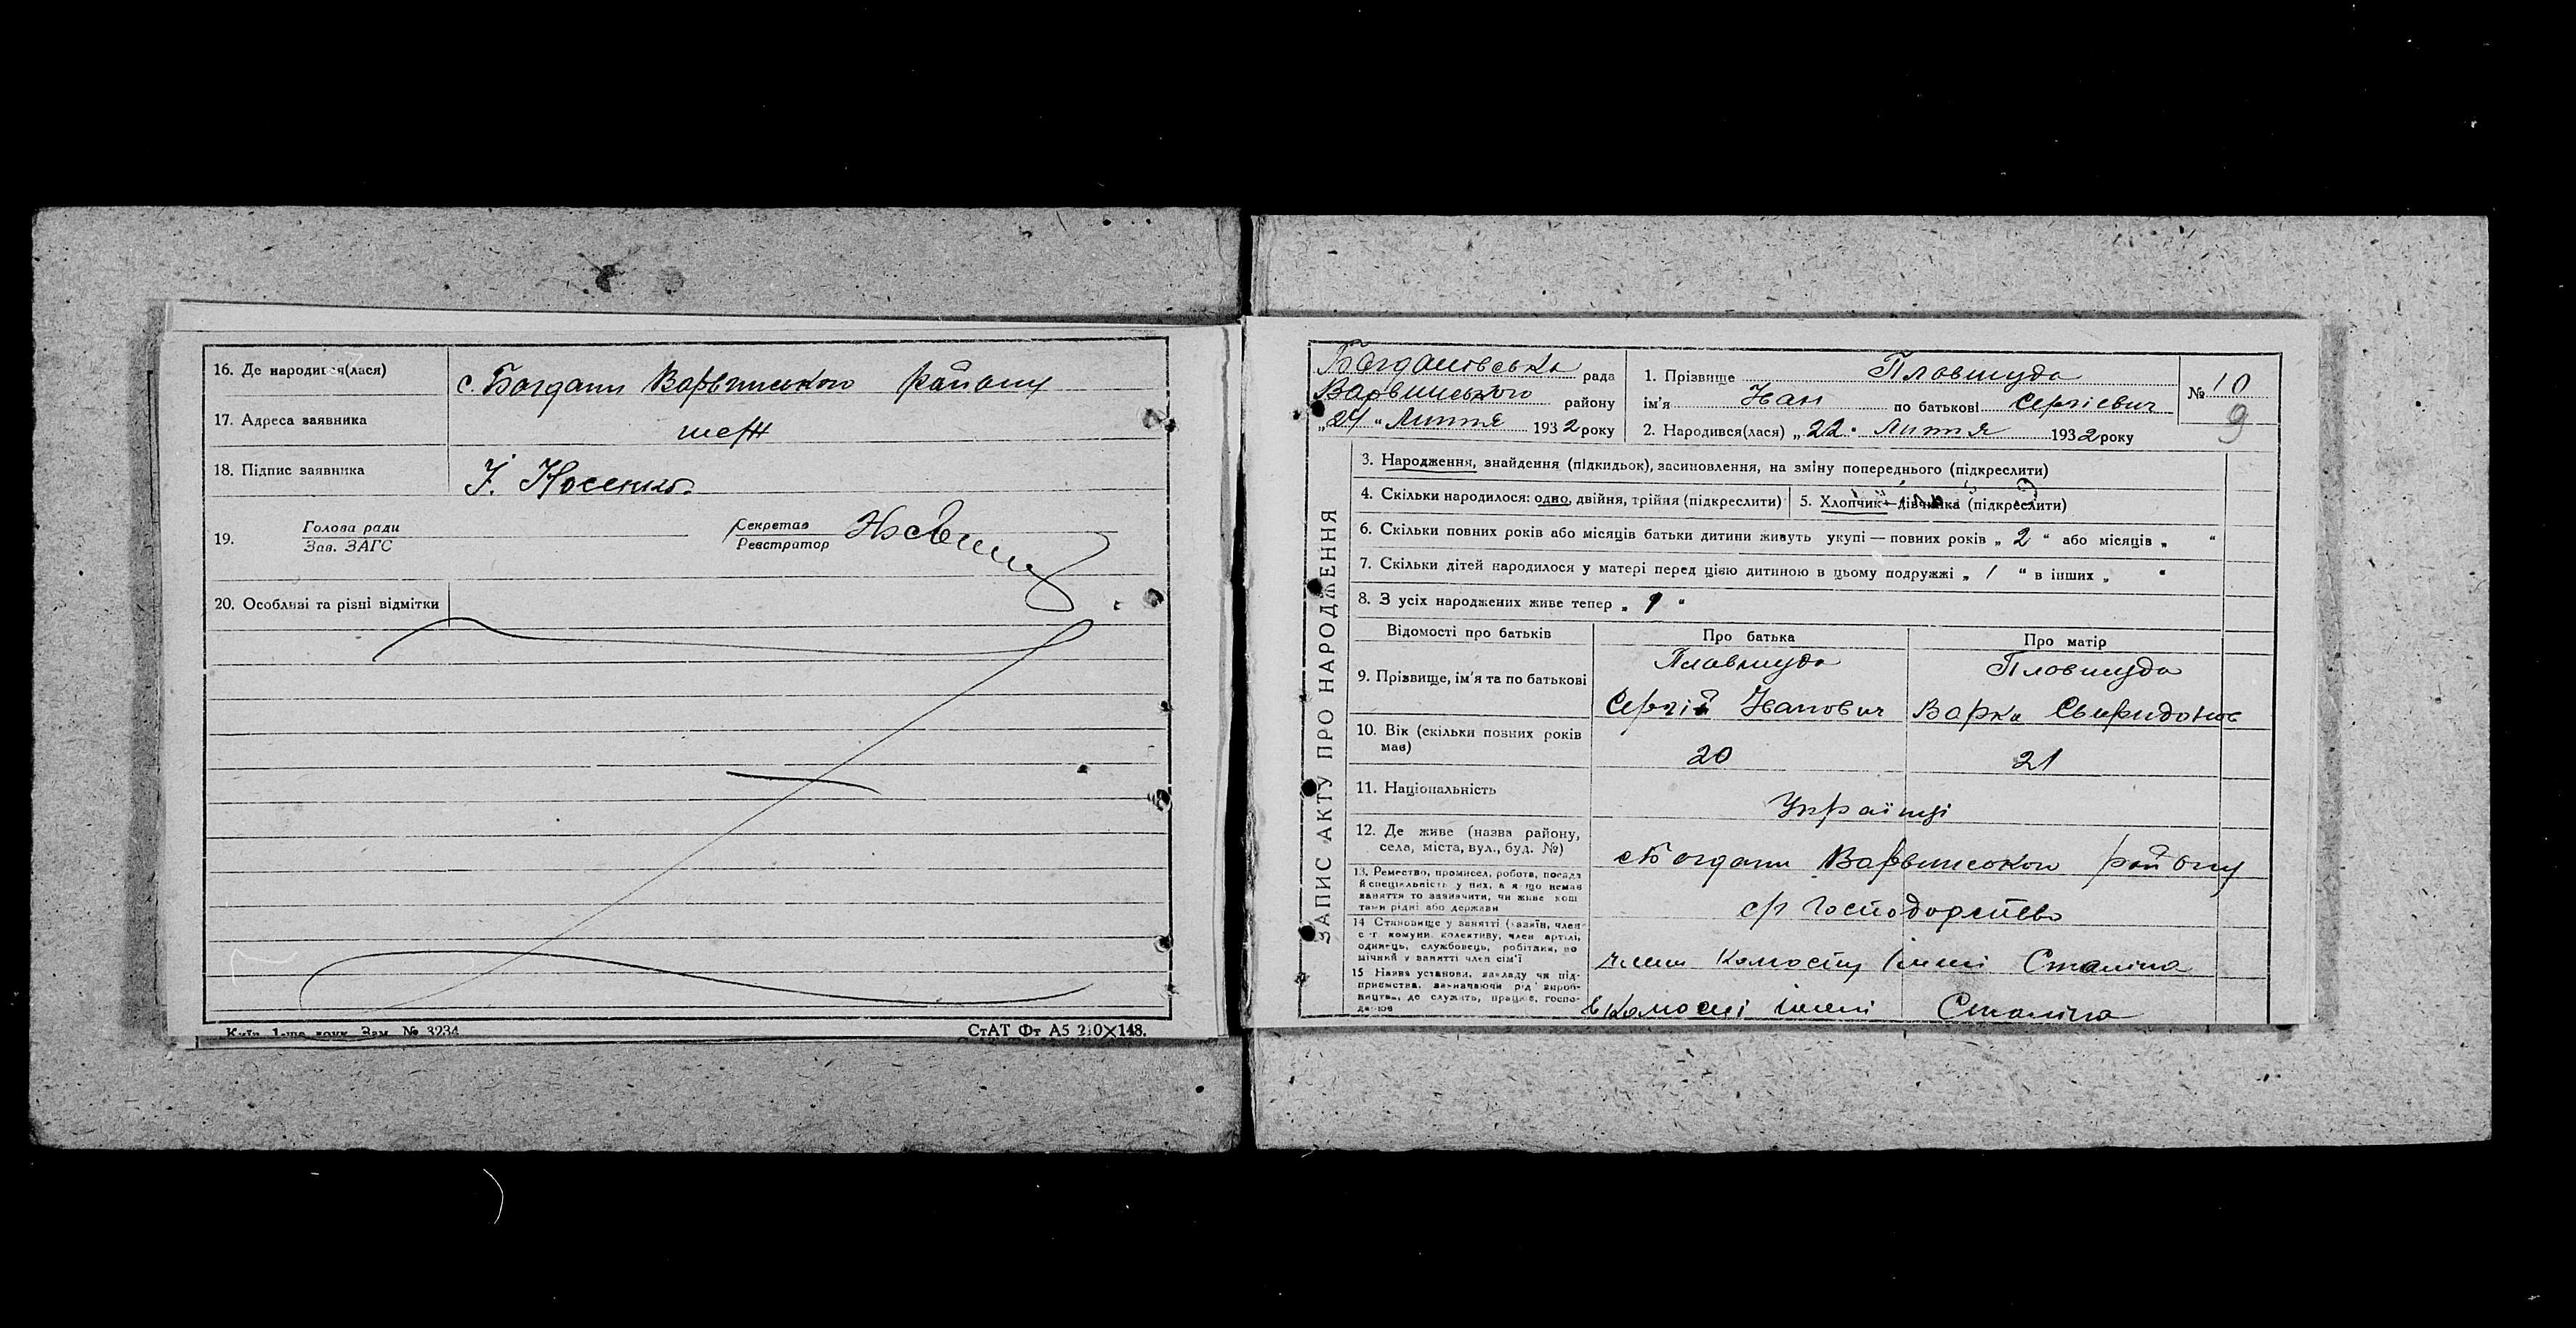 16. Де народився(лася)
с. Богдани Варвинського району
17. Адреса заявника
теж
18. Підпис заявника
І. Носенко
19.
Голова ради
Зав. ЗАГС
Секретар
Реєстратор
20. Особливі та різні відмітки
Київ 1-ша друк. Зам. № 3234
СтАТ Фт А5 210×148.
ЗАПИС АКТУ ПРО НАРОДЖЕННЯ
Богданівська рада
Варвинського району
„24“ Лютня 1932 року
1. Прізвище Плавшуда
ім'я Іван по батькові Сергієвич
2. Народився(лася) „22“ Лютня 1932 року
№ 10
9
3. Народження, знайдення (підкидьок), засиновлення, на зміну попереднього (підкреслити)
4. Скільки народилося: одно, двійня, трійня (підкреслити)
5. Хлопчик—дівчинка (підкреслити)
6. Скільки повних років або місяців батьки дитини живуть укупі — повних років „ 2 “ або місяців „ “
7. Скільки дітей народилося у матері перед цією дитиною в цьому подружжі „ 1 “ в інших „ “
8. З усіх народжених живе тепер „ 1 “
Відомості про батьків
Про батька
Про матір
9. Прізвище, ім'я та по батькові
Плавшуда
Сергій Іванович
Плавшуда
Варка Свиридонов
10. Вік (скільки повних років має)
20
21
11. Національність
Українці
12. Де живе (назва району, села, міста, вул., буд. №)
с Богдани Варвинського району
13. Ремество, промисел, робота, посада
й спеціяльність у них, а якщо немає
заняття то зазначити, чи живе кош
тами рідні або держави
с/г господарство
14 Становище у занятті (хазяїн, член
с.-г. комуни, колективу, член артілі,
одинець, службовець, робітник, по
мічний у занятті член сім'ї
член Комосту імені Сталіна
15 Назва установи, закладу чи під-
приємства, зазначаючи рід вироб-
ництва, де служить, працює, госпо-
дарює
в Комості імені Сталіна